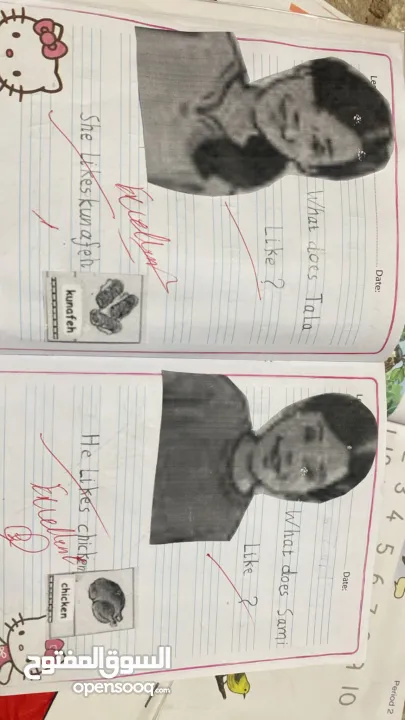 Date:
What does Tala
Like ?
She Likes kunafeh
Excellent
kunafeh
Date:
What does Sami
Like ?
He Likes chicken
Excellent
chicken
3 4 5 6 7
10
Period 2
السوق المفتوح
opensooq.com